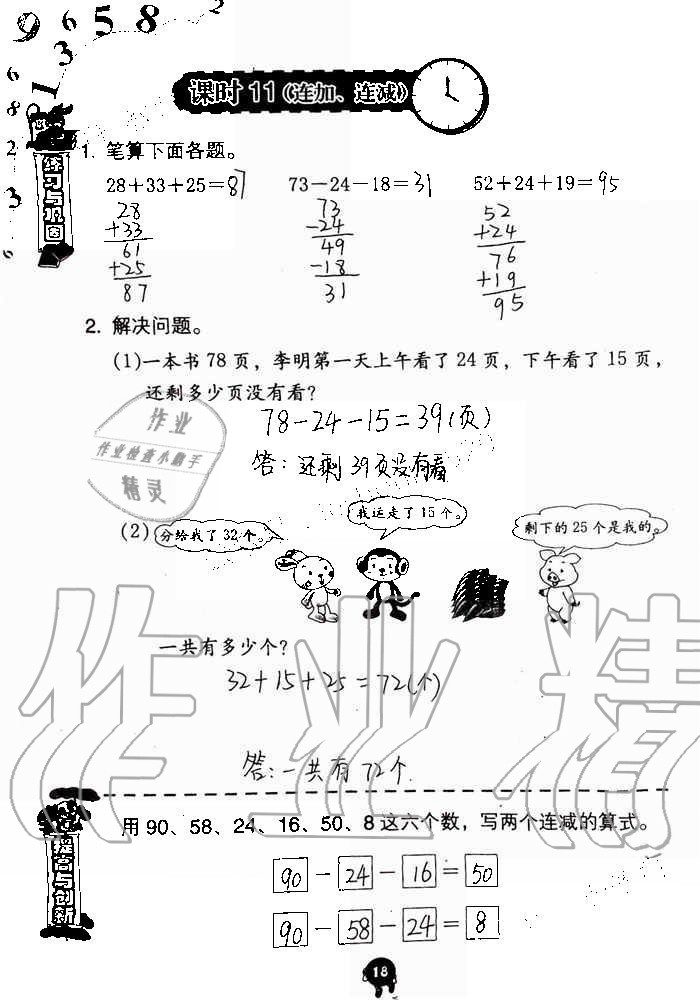 9 6 5 8 2
3
6 1
8
2
3
6
课时 11（连加、连减）
练习与巩固
1. 笔算下面各题。
28+33+25=87 73-24-18=31 52+24+19=95
28 73 52
+33 -24 +24
61 49 76
+25 -18 +19
87 31 95
2. 解决问题。
(1)一本书 78 页，李明第一天上午看了 24 页，下午看了 15 页，
还剩多少页没有看？
78-24-15=39(页)
答：还剩39页没有看
作业
作业检查小助手
精灵
(2)
分给我了 32 个。
我运走了 15 个。
剩下的 25 个是我的。
一共有多少个？
32+15+25=72(个)
答：一共有72个.
作业精
提高与创新
用 90、58、24、16、50、8 这六个数，写两个连减的算式。
90-24-16=50
90-58-24=8
18